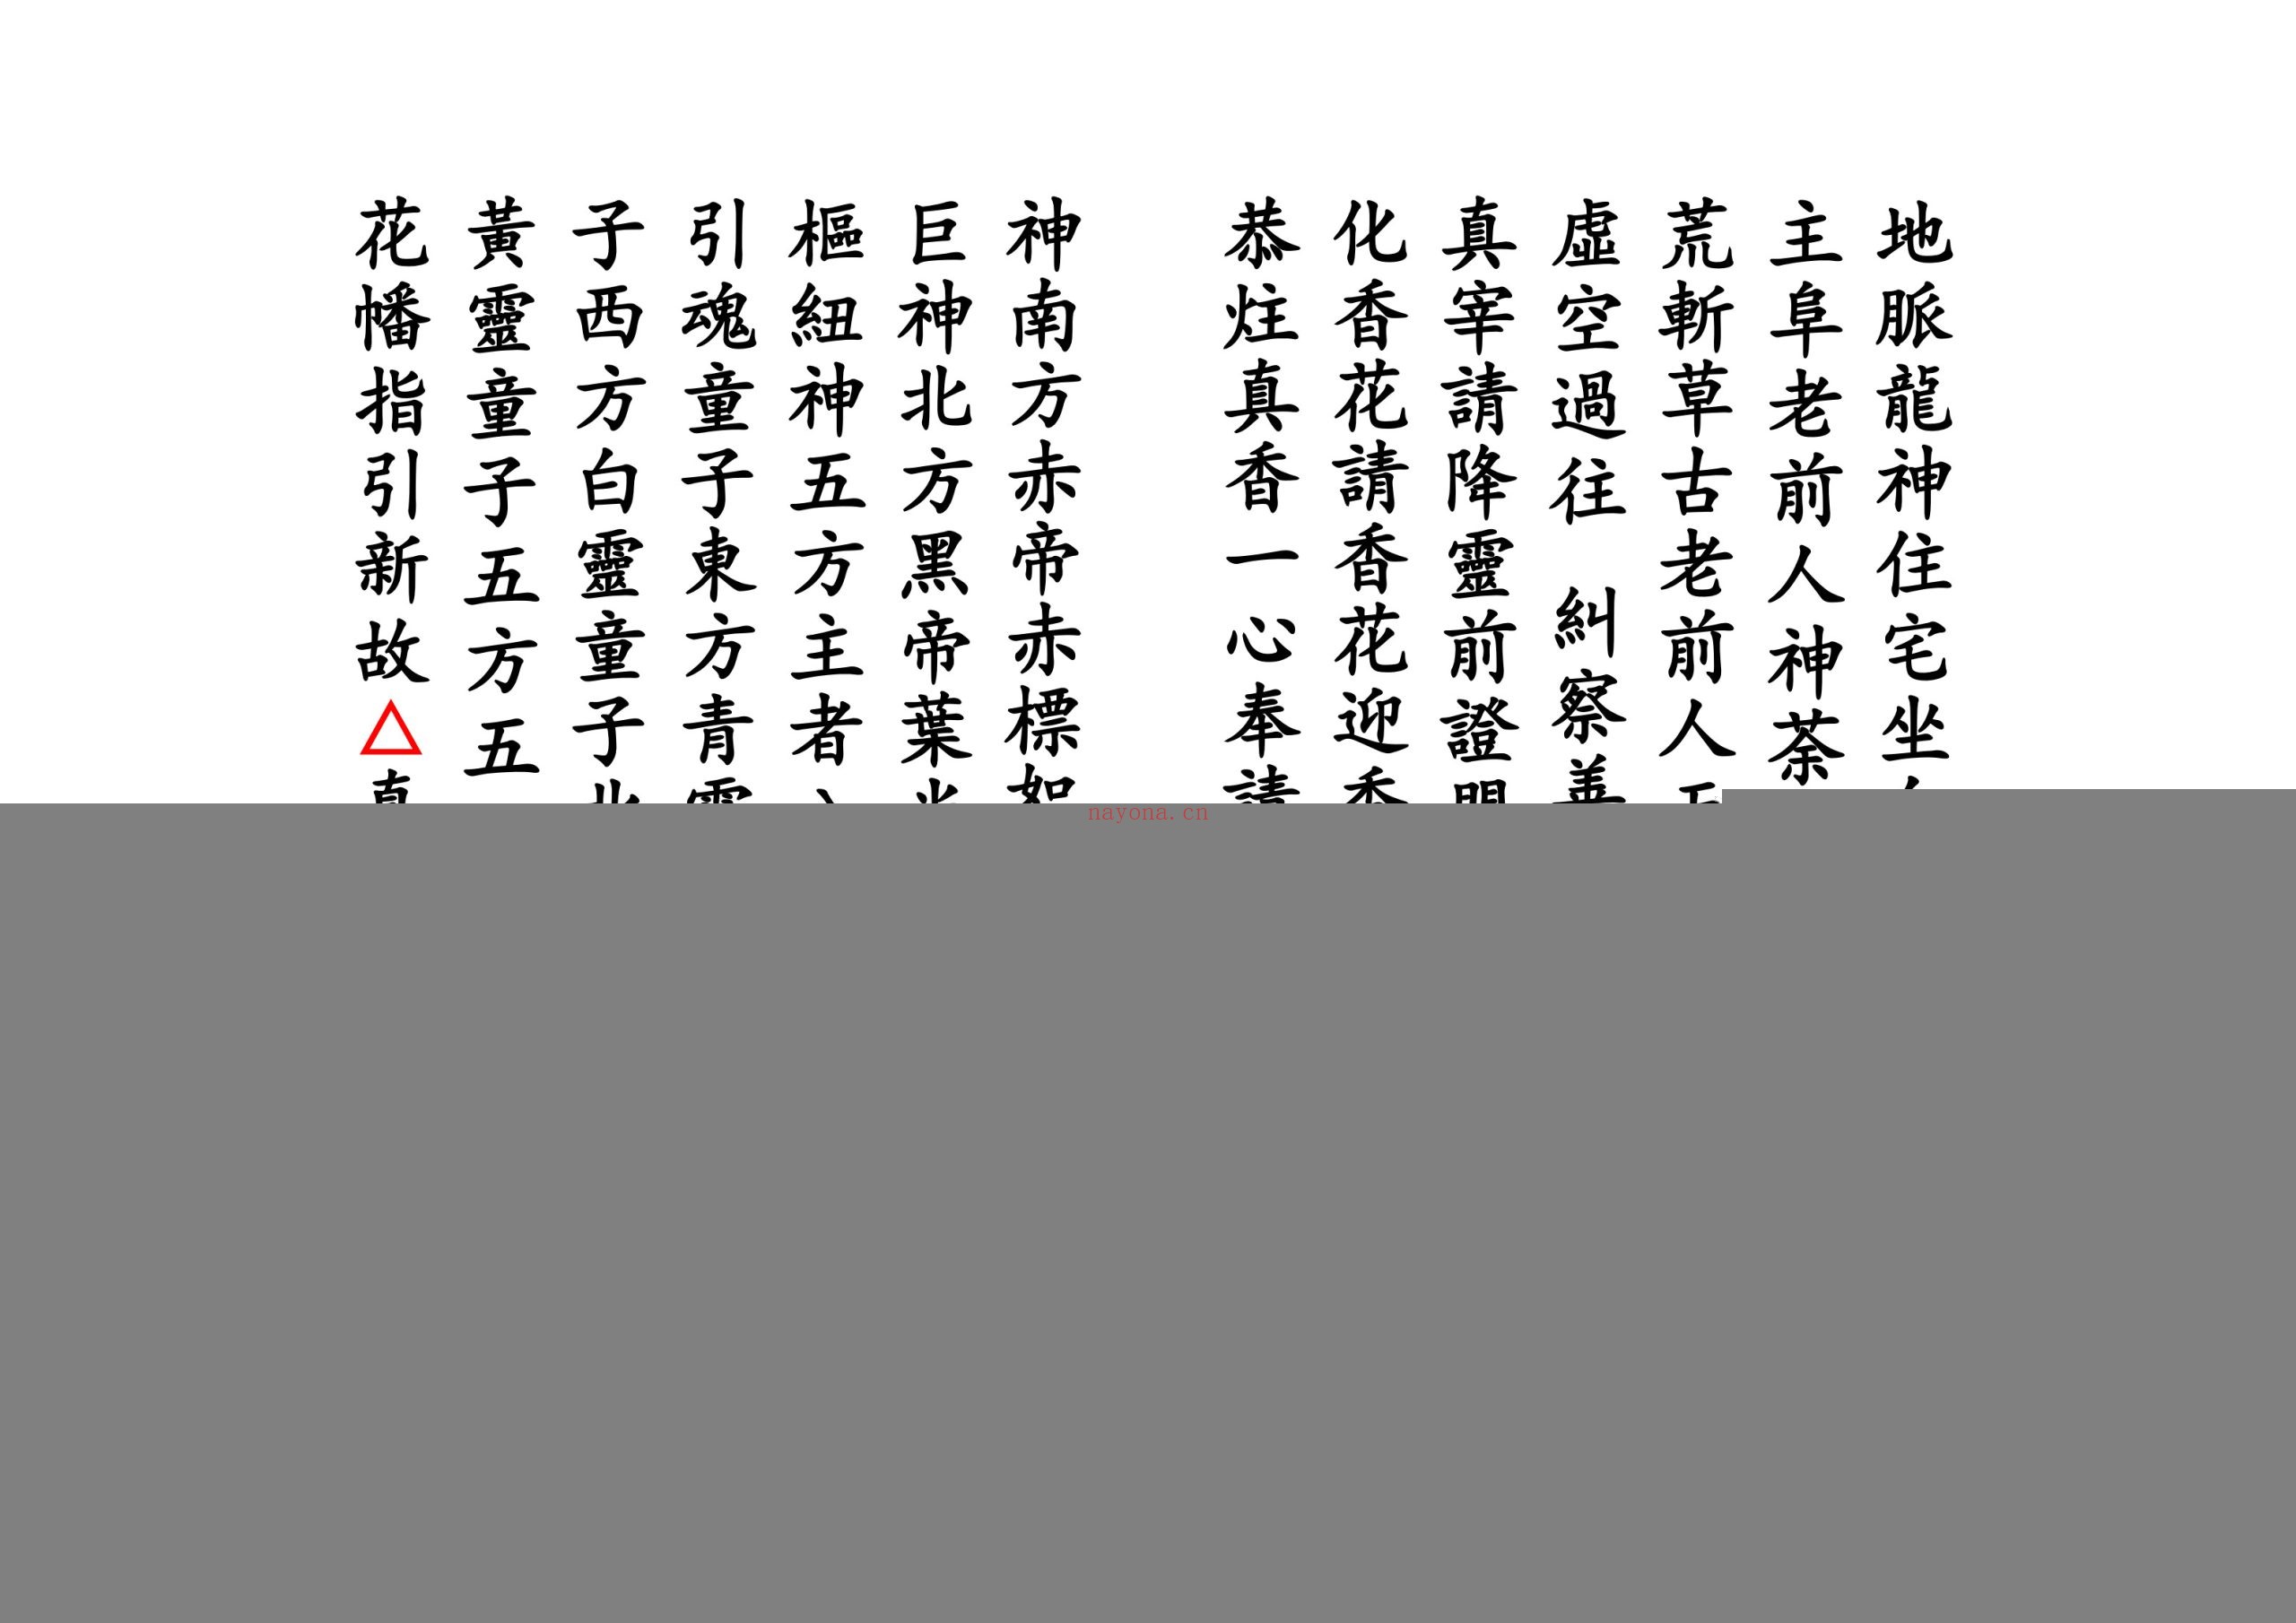 地脈龍神住宅坐
主皁老前人神
荒斬草古老前人
虛空過往 糾察善
真宰請降靈前證
化香花請香花迎
恭庄真香一心奉
神南方赤帝赤標
巨神北方黑帝葉
樞紐神五方主者
引魂童子東方青
子西方白靈童子
黃靈童子五方五
花幡招引新故△
nayona.cn